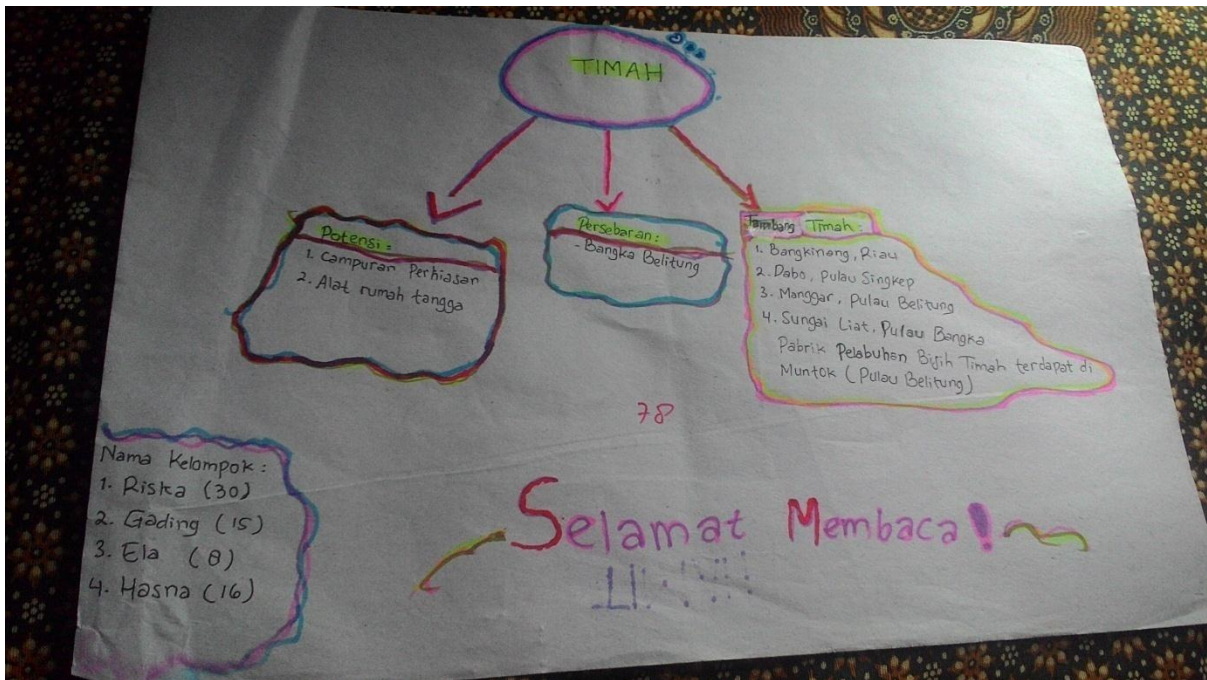 TIMAH
Potensi :
1. Campuran Perhiasan
2. Alat rumah tangga
Persebaran :
- Bangka Belitung
Tambang Timah :
1. Bangkinang, Riau
2. Dabo, Pulau Singkep
3. Manggar, Pulau Belitung
4. Sungai Liat, Pulau Bangka
Pabrik Pelabuhan Bijih Timah terdapat di
Muntok (Pulau Belitung)
78
Nama Kelompok :
1. Riska (30)
2. Gading (15)
3. Ela (8)
4. Hasna (16)
Selamat Membaca!